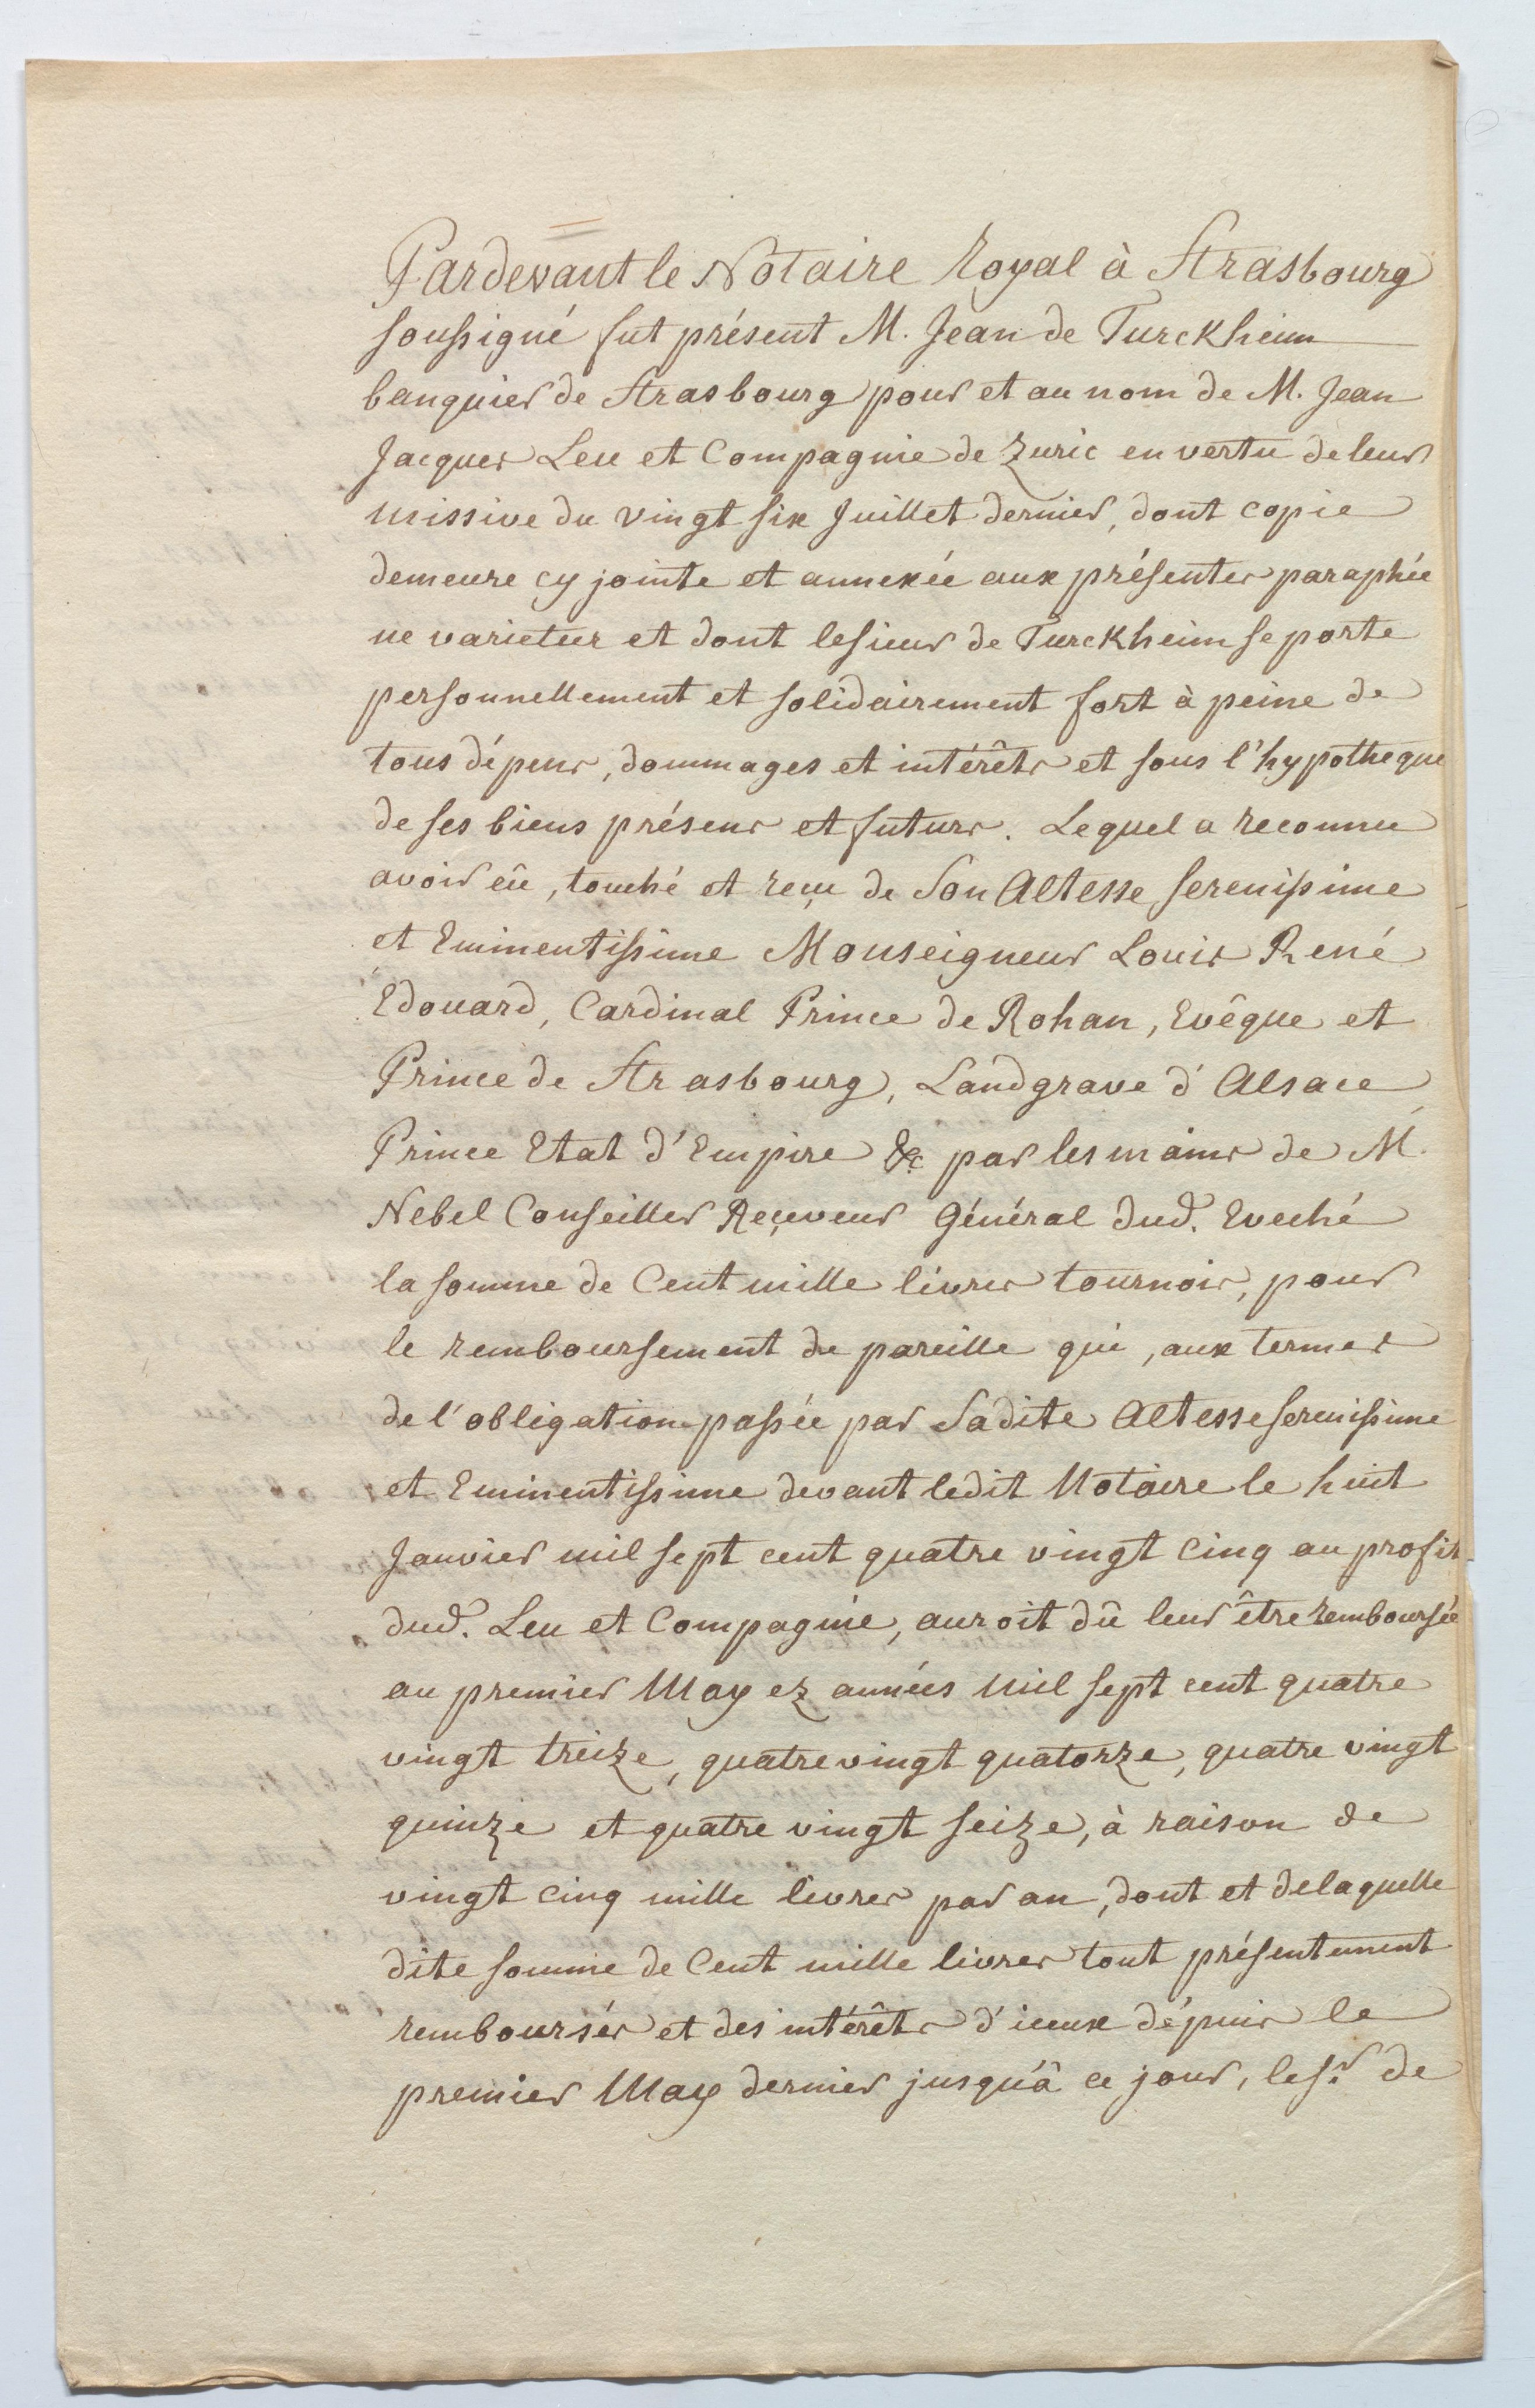 Pardevant le Notaire Royal à Strasbourg
soussigné fut présent M. Jean de Turckheim
banquier de Strasbourg pour et au nom de M. Jean
Jacques Leu et Compagnie de Zuric en vertu de leur
missive du vingt six Juillet dernier, dont copie
demeure cy jointe et annexée aux présentes paraphée
ne varietur et dont le sieur de Turckheim se porte
personnellement et solidairement fort à peine de
tous dépens, dommages et intérêts et sous l'hypotheque
de ses biens présens et futurs. Lequel a reconnu
avoir eû, touché et reçu de Son Altesse Serenissime
et Eminentissime Monseigneur Louis René
Edouard, Cardinal Prince de Rohan, Evêque et
Prince de Strasbourg, Landgrave d'Alsace,
Prince Etat d'Empire &c par les mains de M.
Nebel Conseiller Reçeveur Général dud. Eveché
la somme de Cent mille livres tournois, pour
le remboursement de pareille qui, aux termes
de l'obligation passée par Sadite Altesse Serenissime
et Eminentissime devant ledit Notaire le huit
Janvier mil sept cent quatre vingt cinq au profit
dud. Leu et Compagnie, auroit dû leur être remboursée
au premier May ez années mil sept cent quatre
vingt treize, quatre vingt quatorze, quatre vingt
quinze et quatre vingt seize, à raison de
vingt cinq mille livres par an, dont et de laquelle
dite somme de Cent mille livres tout présentement
remboursés et des intérêts d'iceux dépuis le
premier May dernier jusqu'à ce jour, le Sr. de